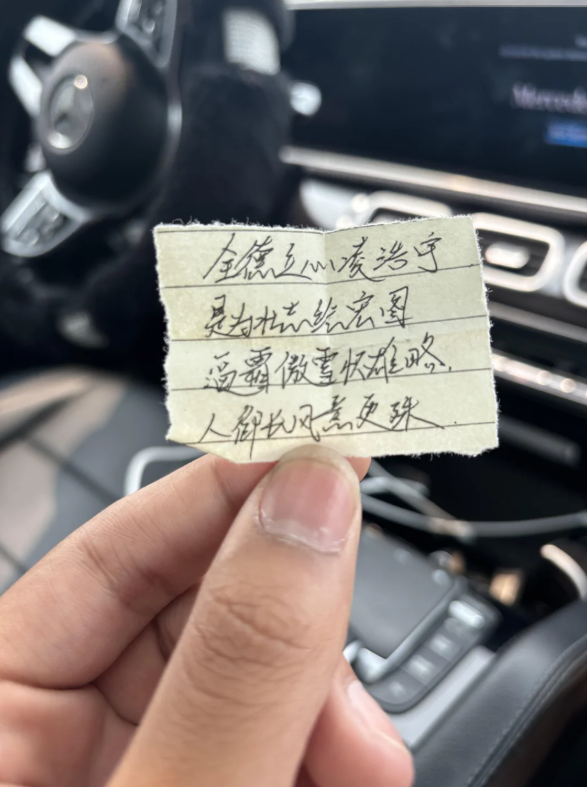 Mercedes
全德立心凌浩宇
是为壮志绘宏图
逼霸傲雪怀雄略.
人御长风意更殊.